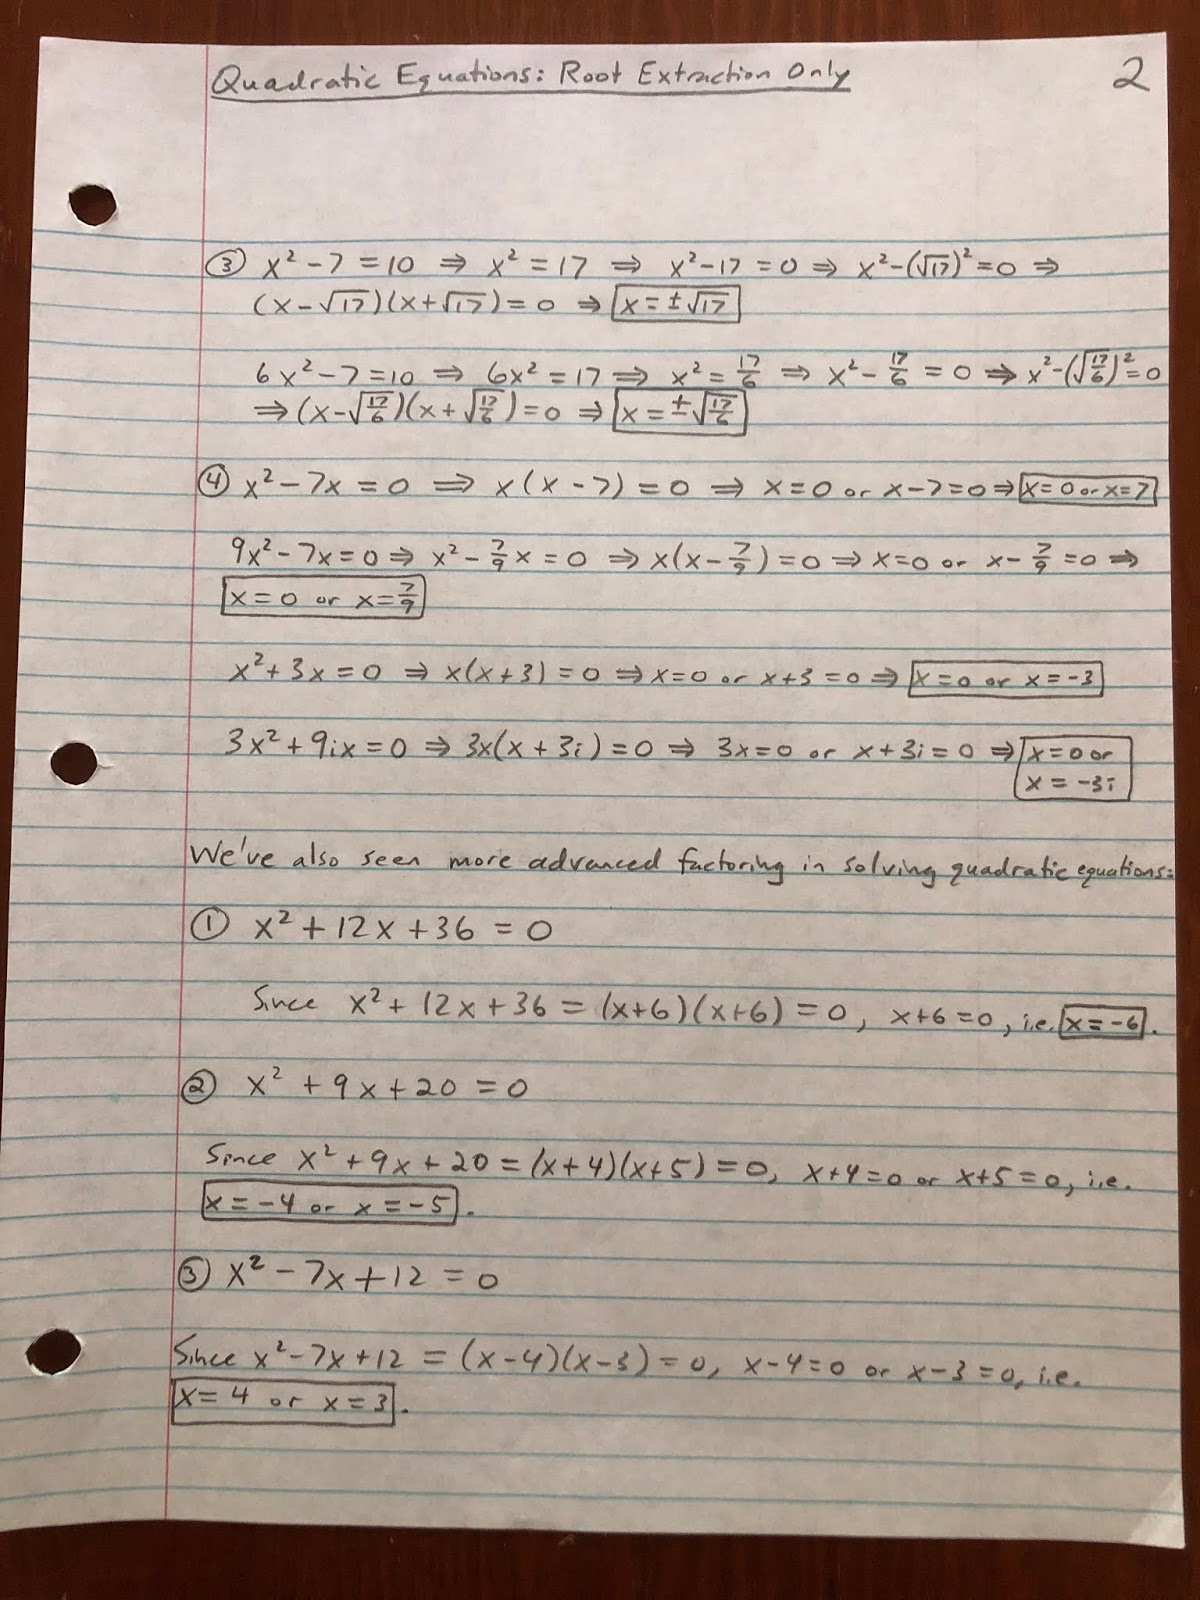 Quadratic Equations: Root Extraction Only 2
③ x² - 7 = 10 ⇒ x² = 17 ⇒ x² - 17 = 0 ⇒ x² - (√17)² = 0 ⇒
(x - √17)(x + √17) = 0 ⇒ x = ±√17
6x² - 7 = 10 ⇒ 6x² = 17 ⇒ x² = 17/6 ⇒ x² - 17/6 = 0 ⇒ x² - (√(17/6))² = 0
⇒ (x - √(17/6))(x + √(17/6)) = 0 ⇒ x = ±√(17/6)
④ x² - 7x = 0 ⇒ x(x - 7) = 0 ⇒ x = 0 or x - 7 = 0 ⇒ x = 0 or x = 7
9x² - 7x = 0 ⇒ x² - 7/9 x = 0 ⇒ x(x - 7/9) = 0 ⇒ x = 0 or x - 7/9 = 0 ⇒
x = 0 or x = 7/9
x² + 3x = 0 ⇒ x(x + 3) = 0 ⇒ x = 0 or x + 3 = 0 ⇒ x = 0 or x = -3
3x² + 9ix = 0 ⇒ 3x(x + 3i) = 0 ⇒ 3x = 0 or x + 3i = 0 ⇒ x = 0 or
x = -3i
We've also seen more advanced factoring in solving quadratic equations:
① x² + 12x + 36 = 0
Since x² + 12x + 36 = (x+6)(x+6) = 0, x+6 = 0, i.e. x = -6.
② x² + 9x + 20 = 0
Since x² + 9x + 20 = (x+4)(x+5) = 0, x+4 = 0 or x+5 = 0, i.e.
x = -4 or x = -5.
③ x² - 7x + 12 = 0
Since x² - 7x + 12 = (x-4)(x-3) = 0, x-4 = 0 or x-3 = 0, i.e.
x = 4 or x = 3.